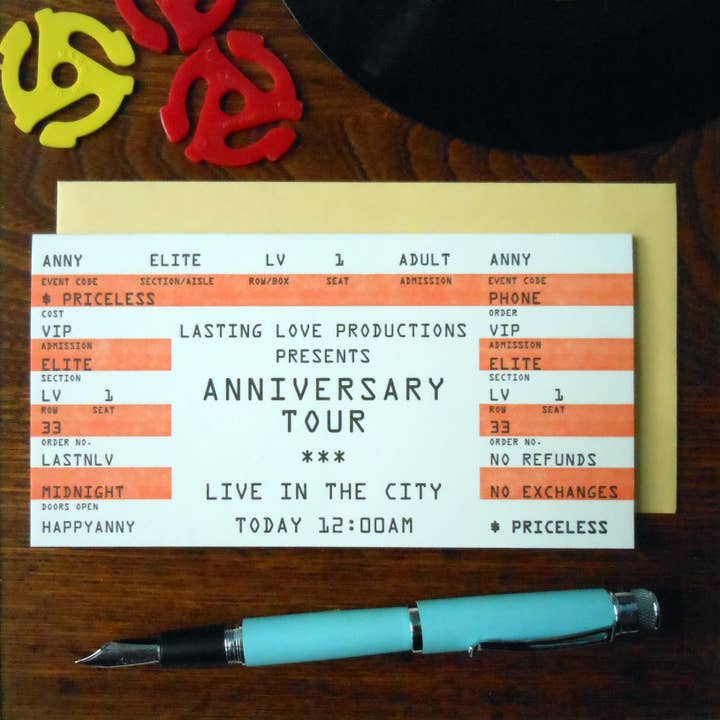 ANNY ELITE LV 1 ADULT ANNY
EVENT CODE SECTION/AISLE ROW/BOX SEAT ADMISSION EVENT CODE
$ PRICELESS PHONE
COST ORDER
VIP LASTING LOVE PRODUCTIONS VIP
ADMISSION PRESENTS ADMISSION
ELITE ELITE
SECTION ANNIVERSARY SECTION
LV 1 LV 1
ROW SEAT TOUR ROW SEAT
33 33
ORDER NO. *** ORDER NO.
LASTNLV NO REFUNDS
MIDNIGHT LIVE IN THE CITY NO EXCHANGES
DOORS OPEN
HAPPYANNY TODAY 12:00AM $ PRICELESS